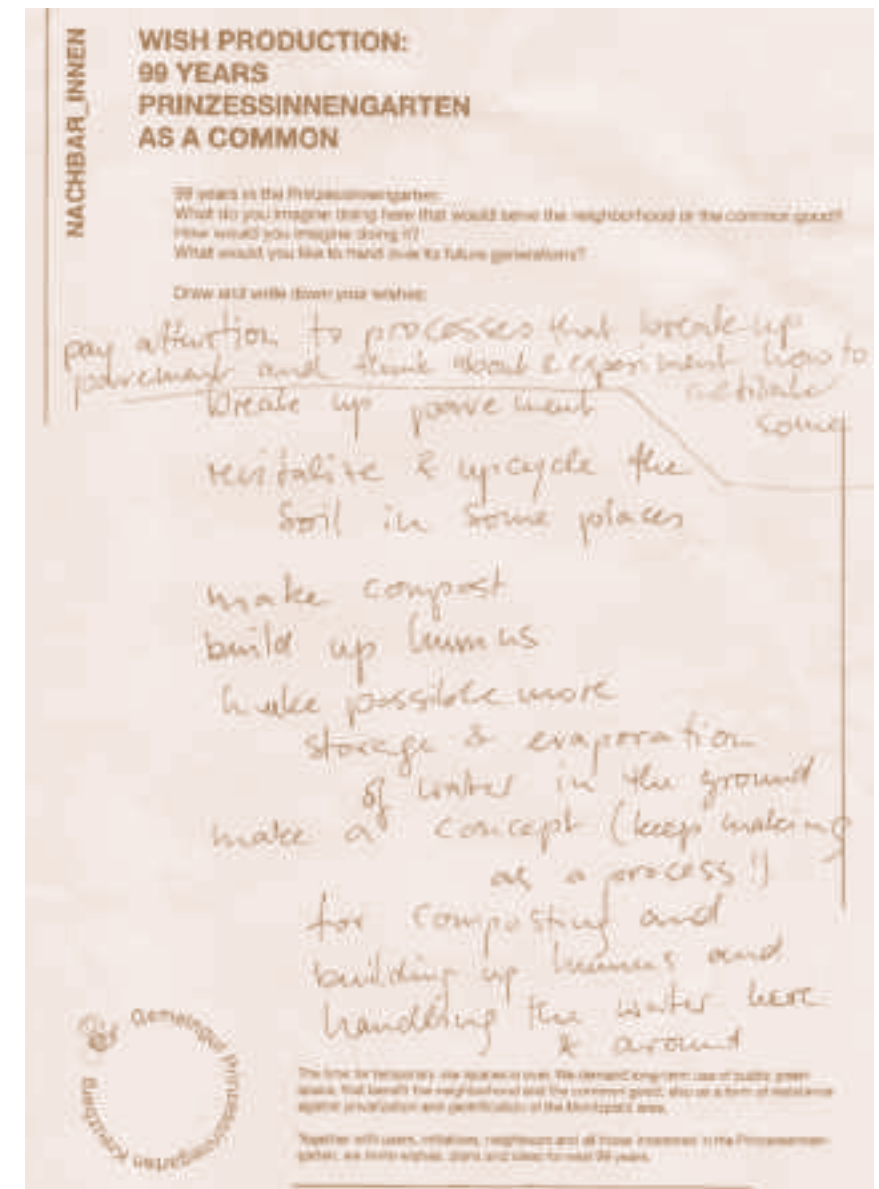 NACHBAR_INNEN
WISH PRODUCTION:
99 YEARS
PRINZESSINNENGARTEN
AS A COMMON
99 years in the Prinzessinnengarten:
What do you imagine doing here that would serve the neighborhood or the common good?
How would you imagine doing it?
What would you like to hand over to future generations?
Draw and write down your wishes:
pay attention to processes that break up
pavement and think about & experiment how to
initiate
some
break up pavement
revitalize & upcycle the
soil in some places
make compost
build up humus
make possible more
storage & evaporation
of water in the ground
make a concept (keep making
as a process!)
for composting and
building up humus and
handling the water here
& around
Gemeingut Prinzessinnengarten Kreuzberg
The time for temporary use spaces is over. We demand long-term use of public green
space, that benefit the neighborhood and the common good, also as a form of resistance
against privatization and gentrification of the Moritzplatz area.
Together with users, initiatives, neighbours and all those interested in the Prinzessinnen-
garten, we invite wishes, plans and ideas for next 99 years.